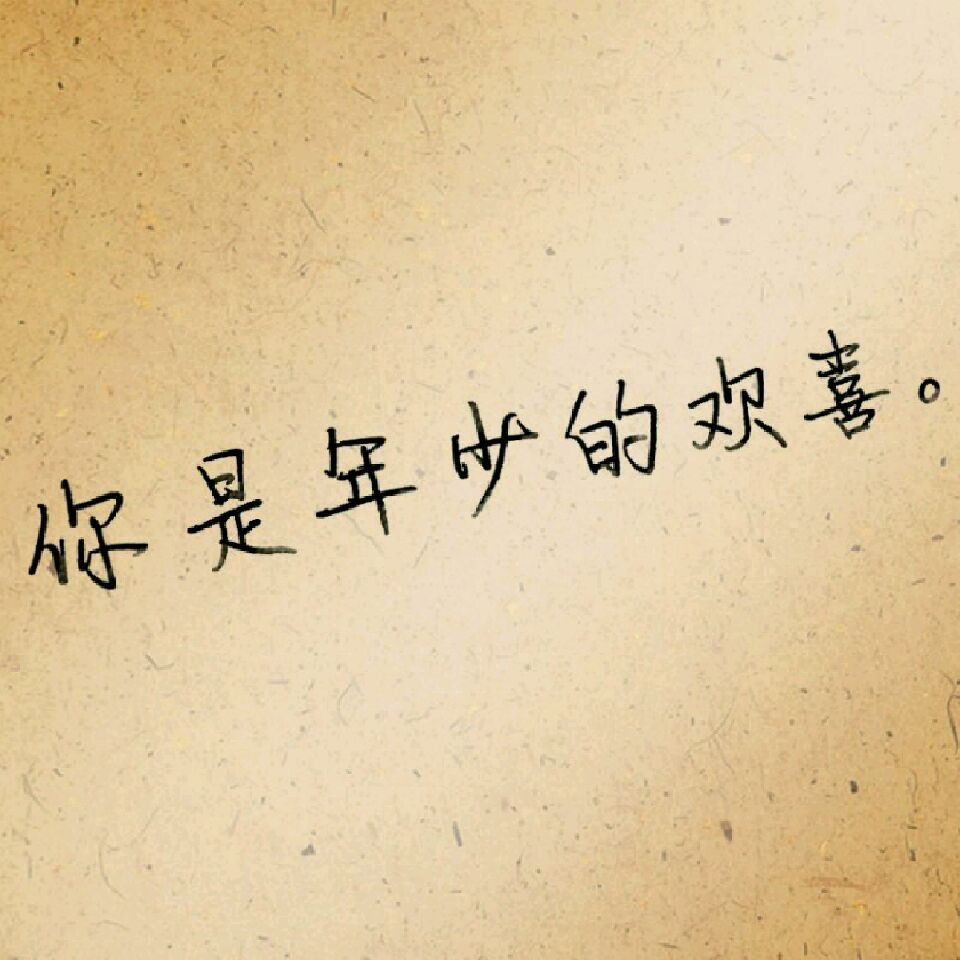 你是年少的欢喜。